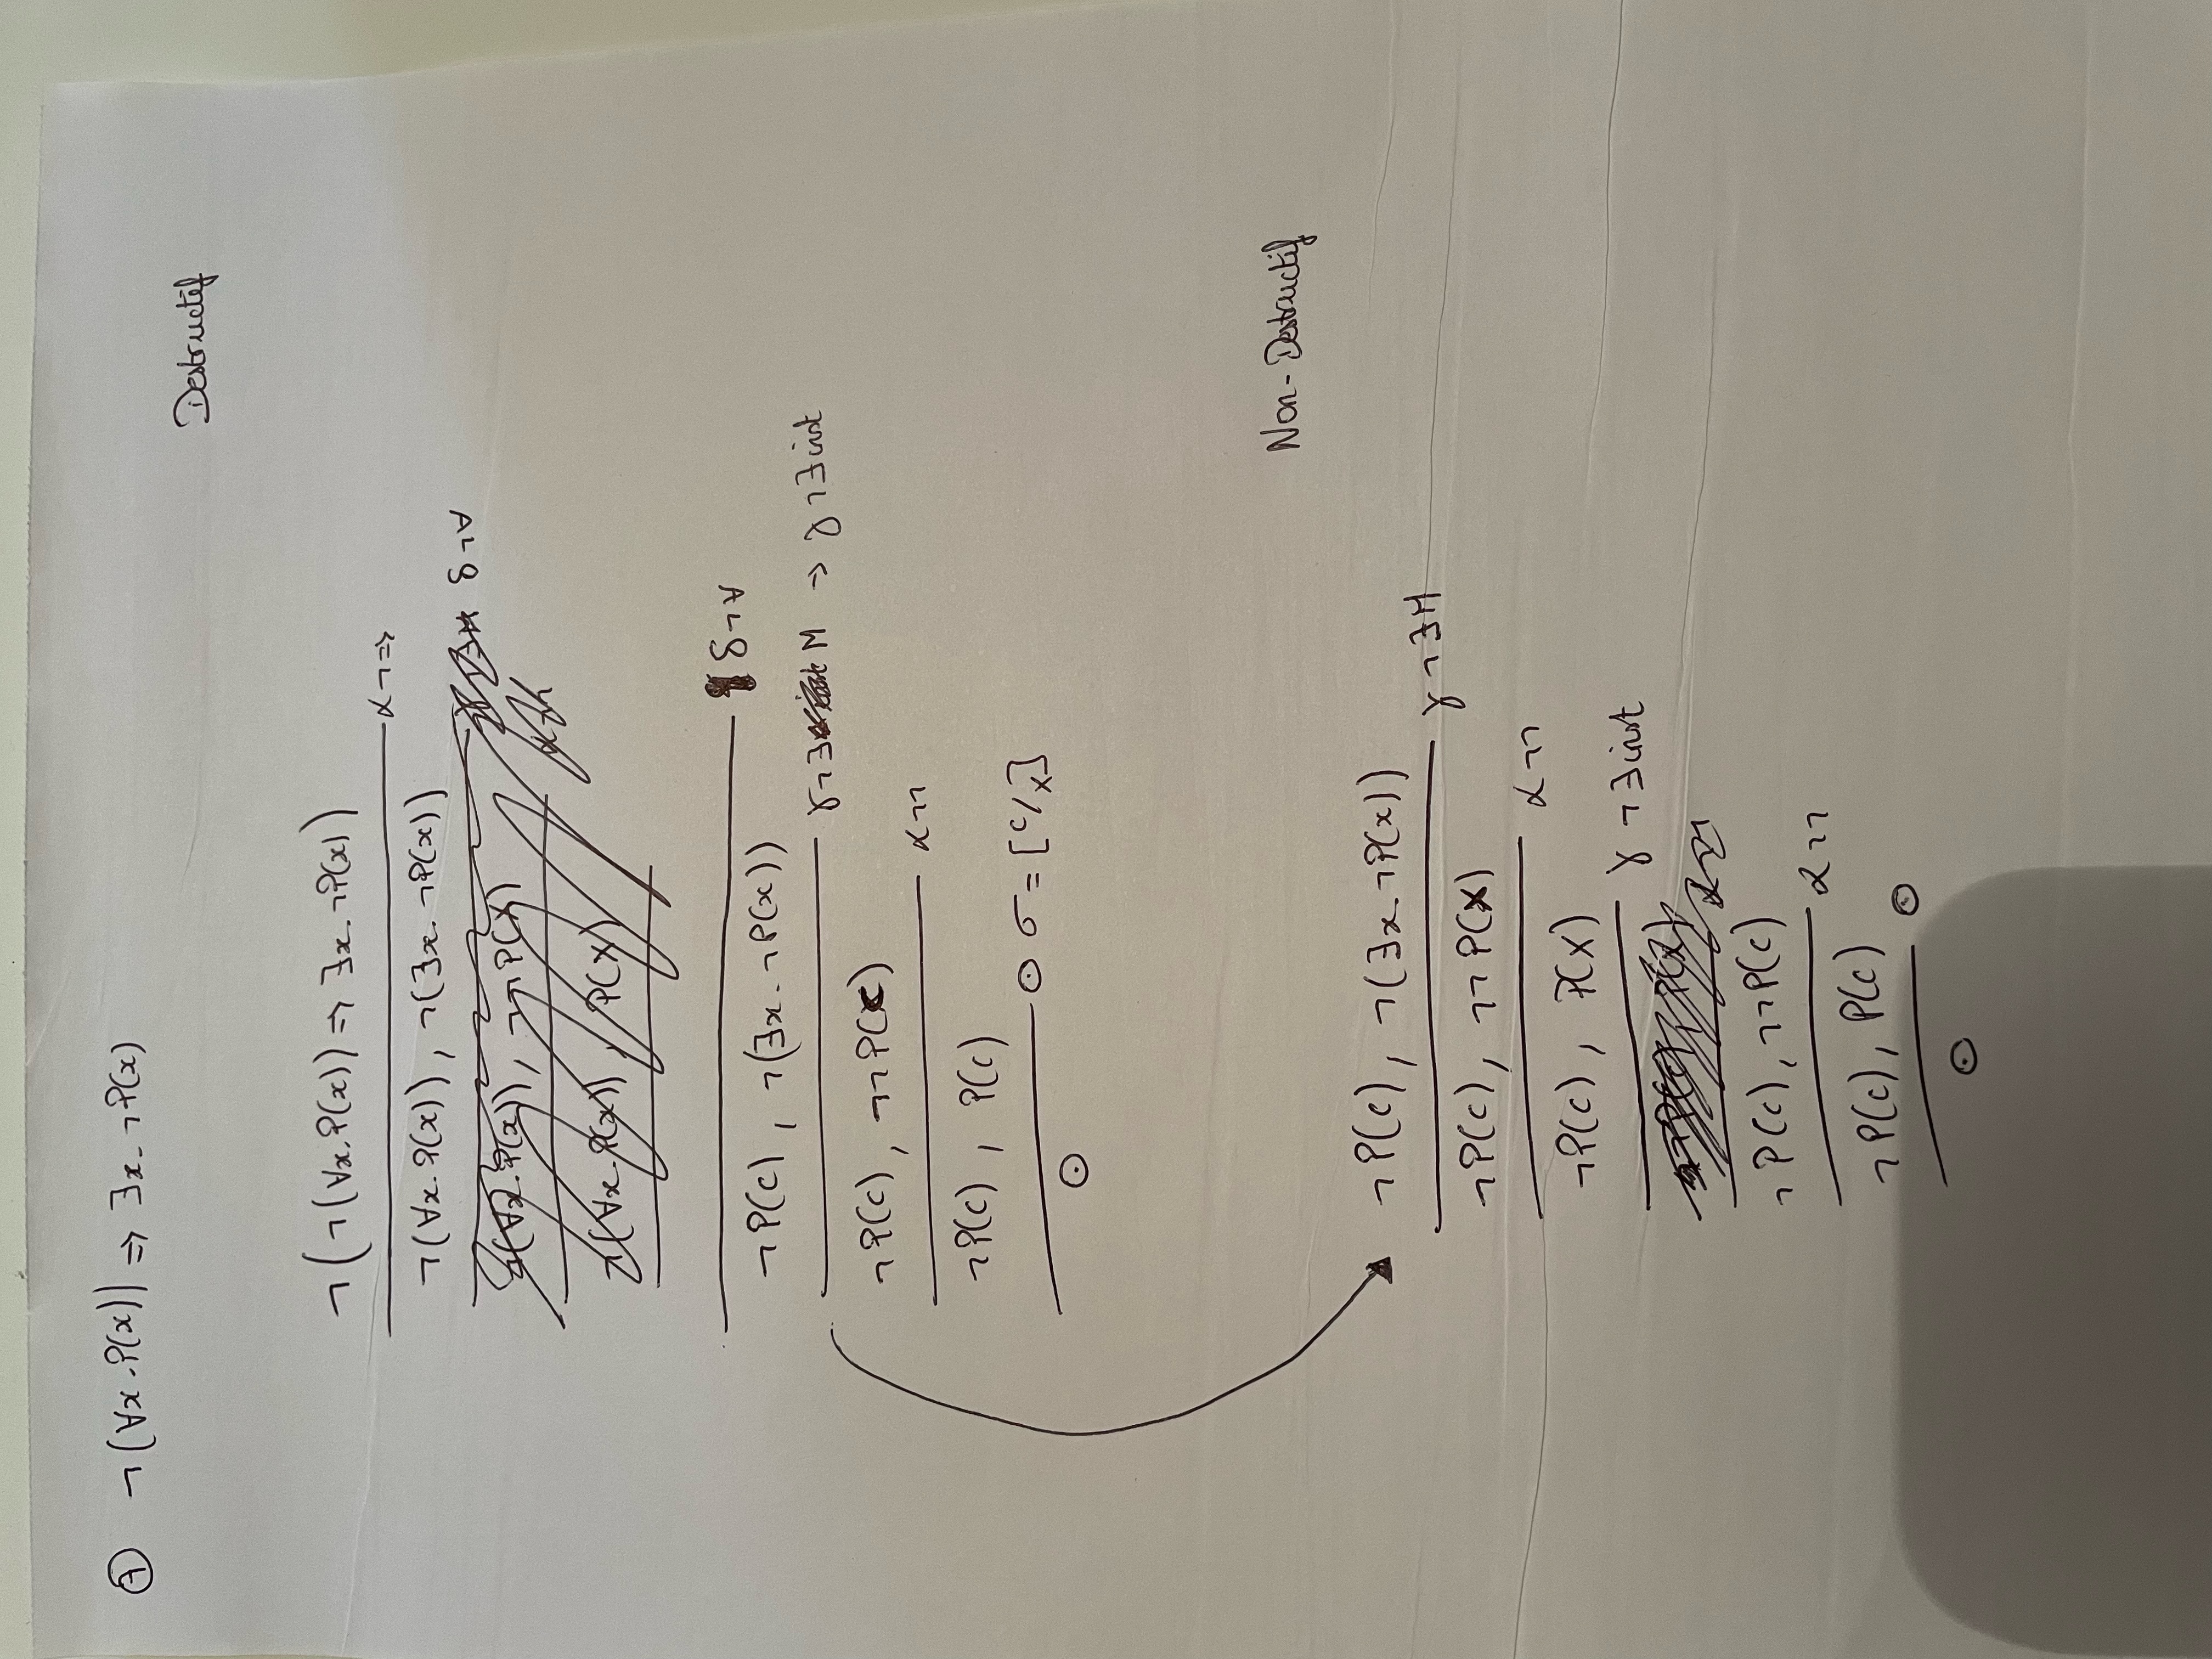 ⑦ ¬(∀x.P(x)) ⇒ ∃x.¬P(x)
Destructif
¬(¬(∀x.P(x)) ⇒ ∃x.¬P(x))
α¬⇒
¬(∀x.P(x)), ¬(∃x.¬P(x))
δ¬∀
¬(∀x.P(x)), ¬¬P(X)
¬(∀x.P(x)), P(X)
δ¬∀
¬P(c), ¬(∃x.¬P(x))
γ¬∃M → γ¬∃inst
¬P(c), ¬¬P(c)
α¬¬
¬P(c), P(c)
⊙ σ = [c/X]
⊙
Non-Destructif
¬P(c), ¬(∃x.¬P(x))
γ¬∃M
¬P(c), ¬¬P(X)
α¬¬
¬P(c), P(X)
γ¬∃inst
¬P(c), ¬¬P(c)
α¬¬
¬P(c), P(c)
⊙
⊙